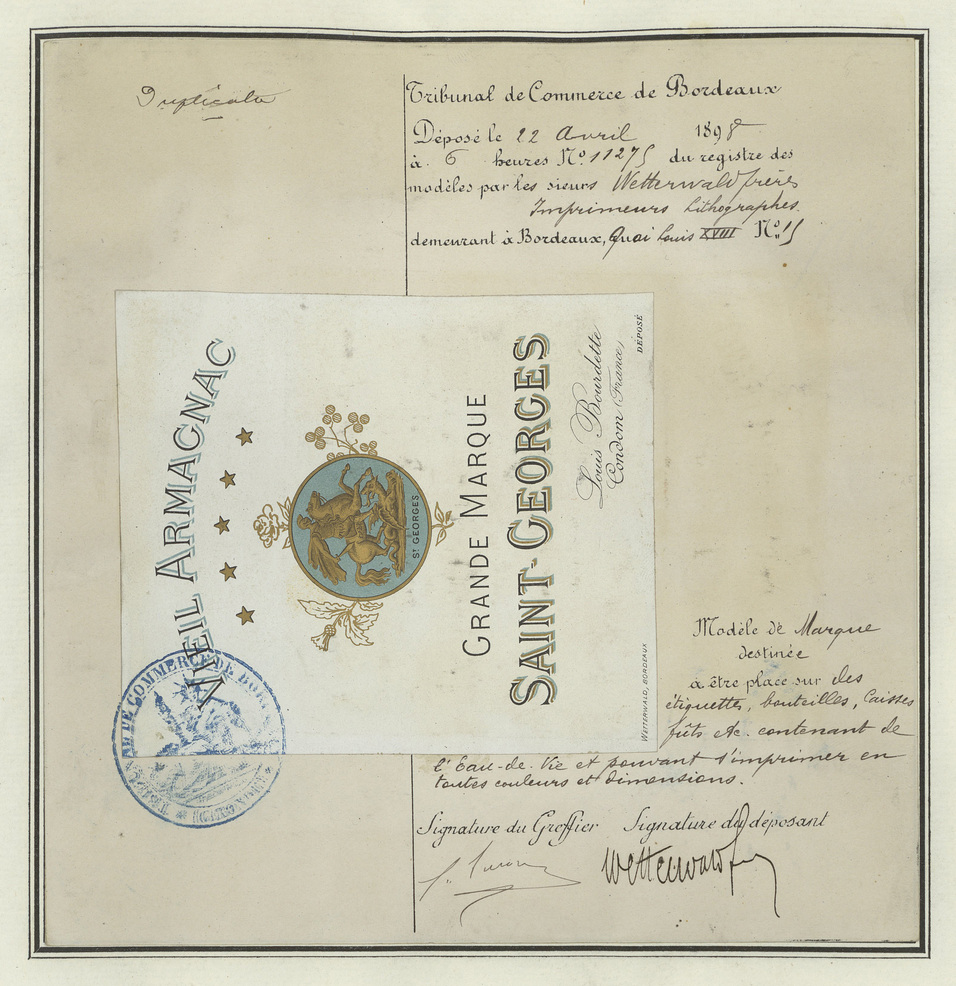 Duplicata
Tribunal de Commerce de Bordeaux
Déposé le 22 Avril 1898
à 6 heures No. 11275 du registre des
modèles par les sieurs Wetterwald frères
Imprimeurs Lithographes.
demeurant à Bordeaux, Quai Louis XVIII No. 15
VIEIL ARMAGNAC
ST GEORGES
GRANDE MARQUE
SAINT-GEORGES
Louis Bourdette
Condom (France)
DÉPOSÉ
WETTERWALD, BORDEAUX
Modèle de Marque
destinée
à être placé sur des
étiquettes, bouteilles, Caisses
fûts etc. contenant de
l'Eau-de-Vie et pouvant s'imprimer en
toutes couleurs et dimensions.
DE COMMERCE DE BORD
Signature du Greffier Signature du déposant
Wetterwald